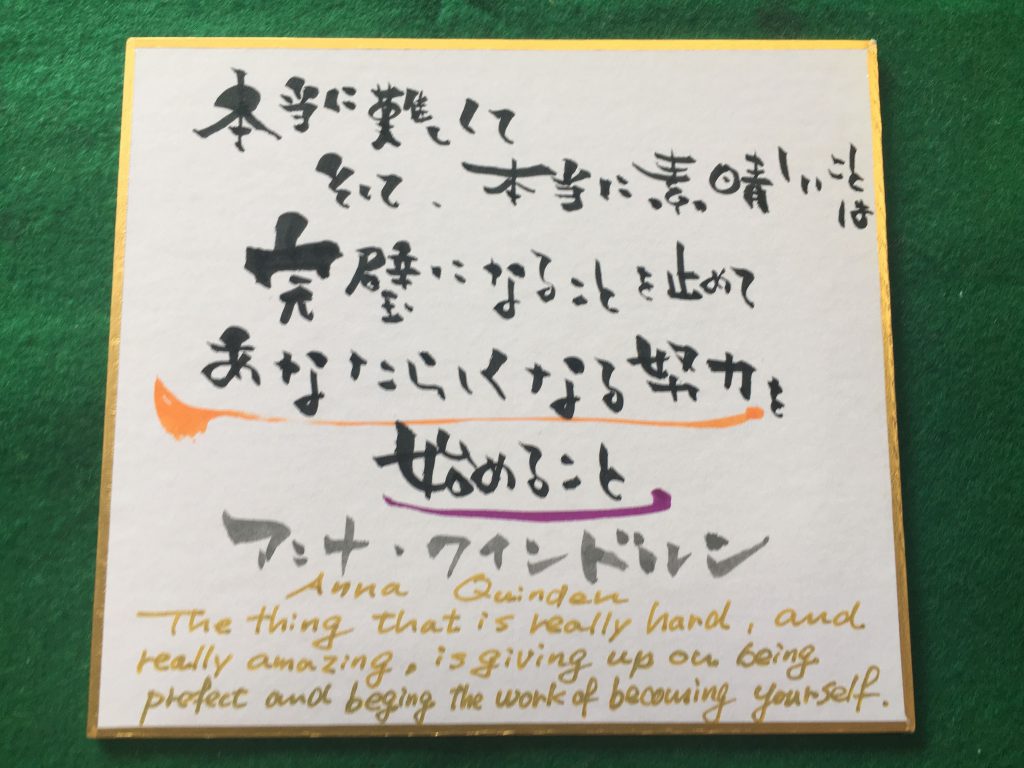 本当に難しくて
そして、本当に素晴しいことは
完璧になることを止めて
あなたらしくなる努力を
始めること
アンナ・クインドルレン
Anna Quinden
The thing that is really hard, and
really amazing, is giving up on being
prefect and beging the work of becoming yourself.